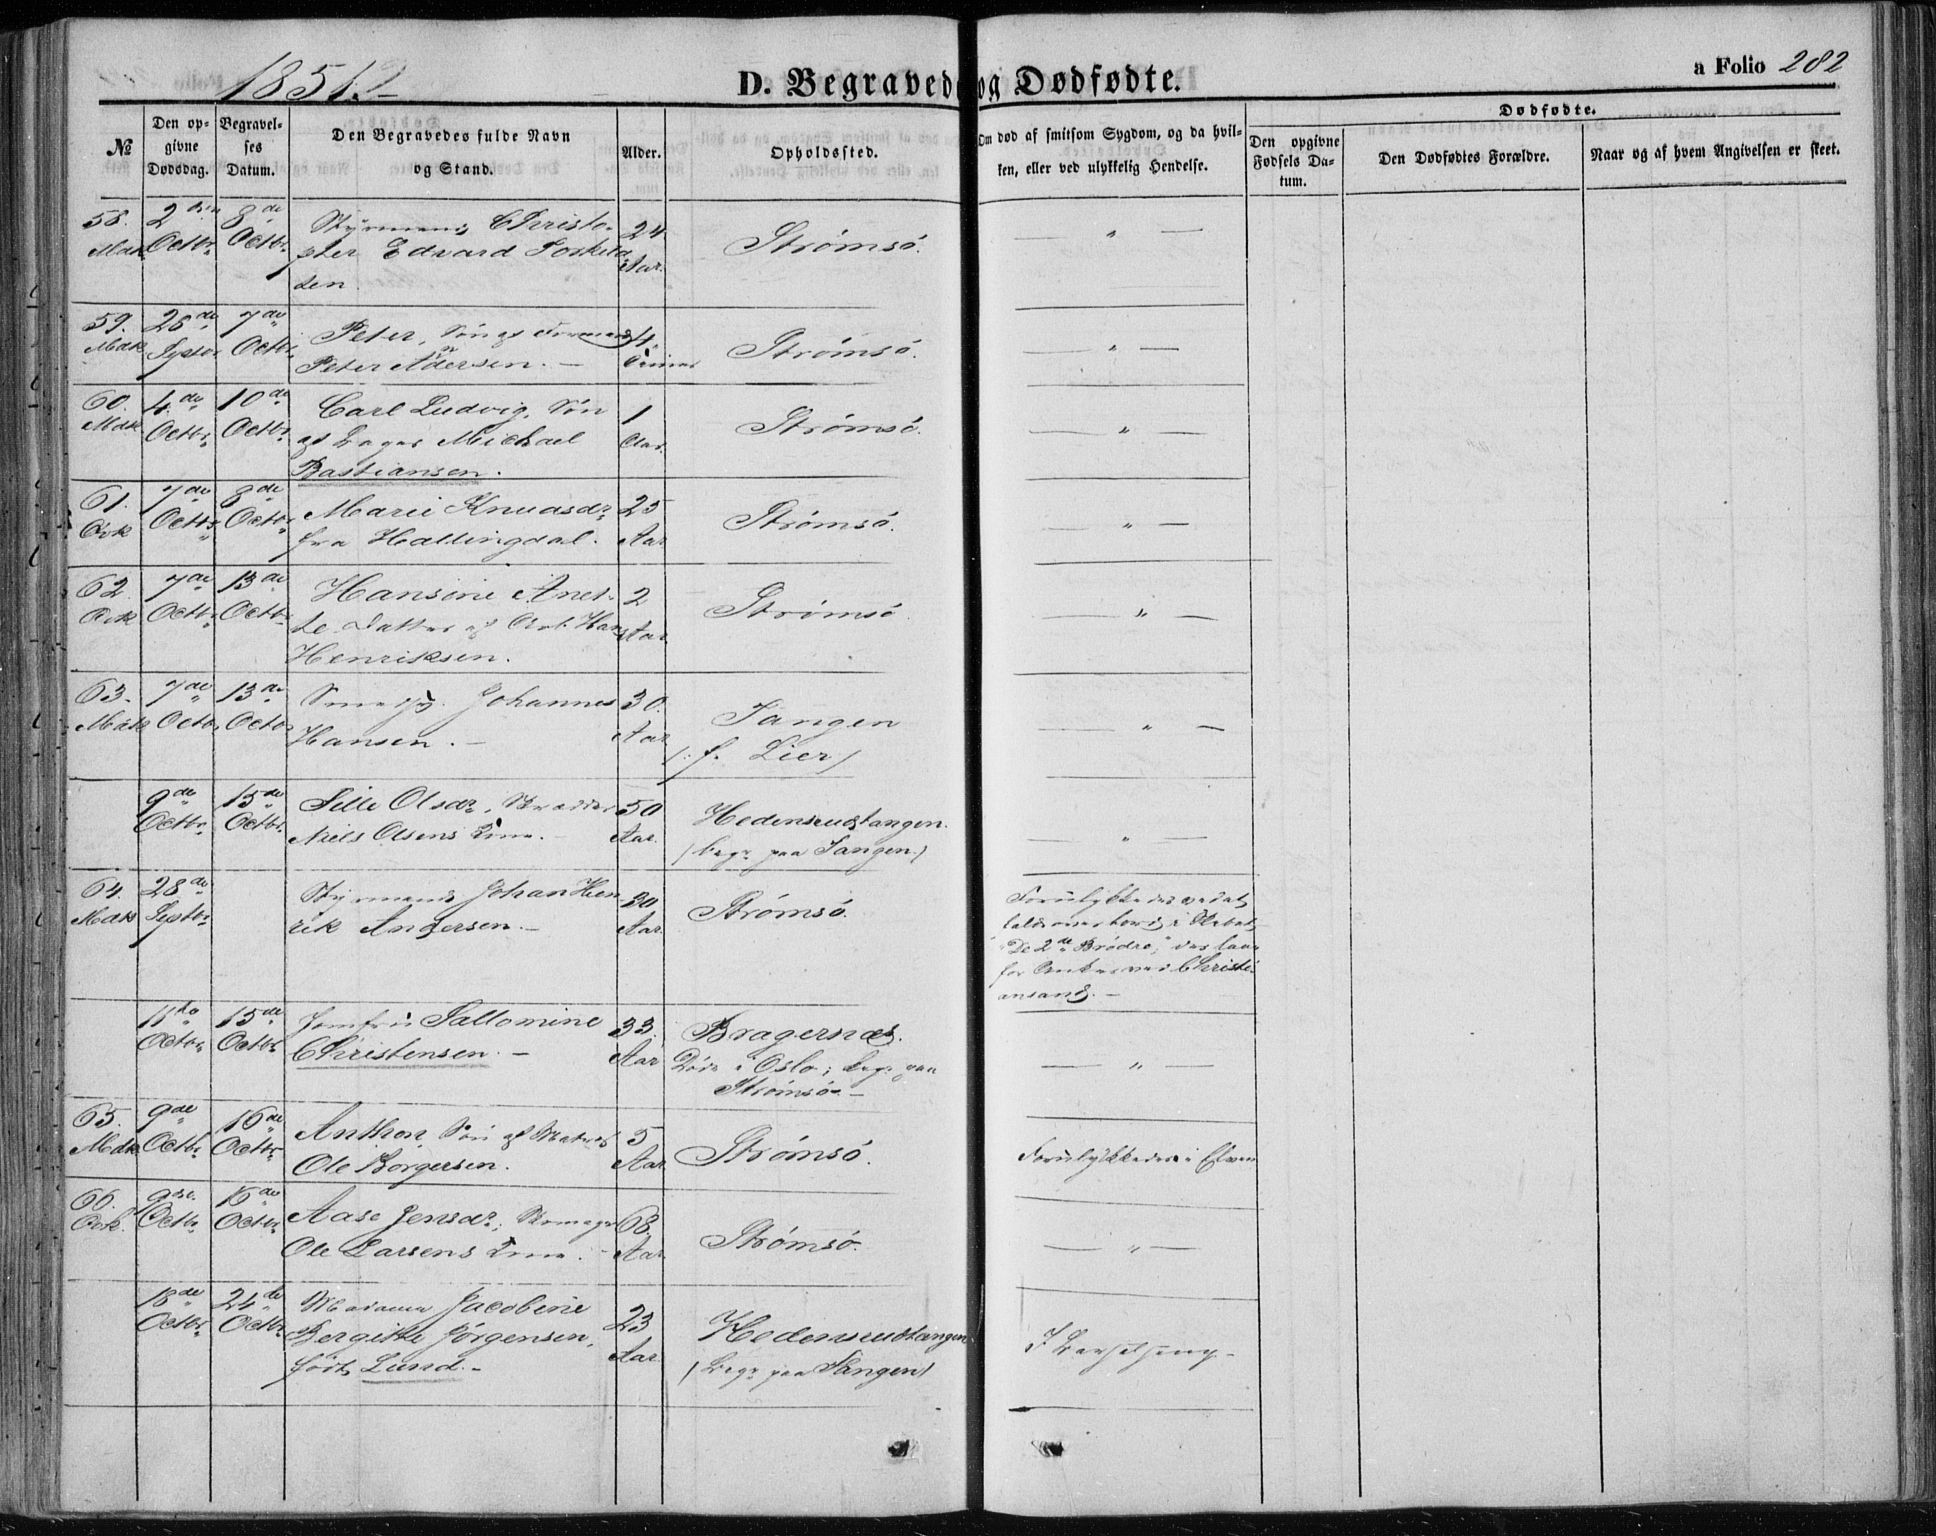 1851.
D. Begravede og Dødfødte.
a Folio 282
№
Den op-
givne
Dødsdag.
Begravel-
ses
Datum.
Den Begravedes fulde Navn
og Stand.
Alder.
Opholdssted.
Om død af smitsom Sygdom, og da hvil-
ken, eller ved ulykkelig Hendelse.
Dødfødte.
Den opgivne
Fødsels Da-
tum.
Den Dødfødtes Forældre.
Naar og af hvem Angivelsen er skeet.
58.
Mdk
2den
Octbr.
8de
Octbr.
Styrmand Christo-
pher Edvard Torkild-
sen.
24
Aar.
Strømsö.
— " —
59.
Mdk
26de
Septbr.
7de
Octbr.
Peter, Sön af
Peter Andersen. —
4
Timer
Strømsö.
— " —
60.
Mdk
4de
Octbr.
10de
Octbr.
Carl Ludvig, Sön
af Bager Michael
Bastiansen.
1
Aar.
Strømsö.
— " —
61.
Qvk
7de
Octbr.
8de
Octbr.
Marie Knudsdr.
fra Hallingdal.
25
Aar
Strømsö.
— " —
62.
Qvk
7de
Octbr.
13de
Octbr.
Hansine Anet-
te Datter af Arb. Hans
Henriksen.
2
Aar.
Strømsö
— " —
63.
Mdk
7de
Octbr.
13de
Octbr.
Johannes
Hansen. —
30.
Aar
Tangen
/: f. Lier/
— " —
9de
Octbr.
15de
Octbr.
Pille Olsdr., Skrædder
Niels Olsens Kone. —
50
Aar.
Hedensrudtangen.
/begr. paa Tangen./
" —
64.
Mdk
28de
Septbr.
Styrmand Johan Hen-
rik Andersen. —
30
Aar.
Strømsö.
Forulykkede ved at
falde overbord i Skibet
"De 2de Brödre," der laae
for Anker ved Christi-
ansand. —
11te
Octbr.
15de
Octbr.
Jomfru Sallomine
Christensen. —
33.
Aar
Bragernæs.
Död i Oslo; begr. paa
Strømsö —
— " —
65.
Mdk
9de
Octbr.
16de
Octbr.
Anthon, Sön af Matros
Ole Borgersen.
5
Aar
Strømsö.
Forulykkede i Elven
66.
Qvk.
9de
Octbr.
16de
Octbr.
Aase Jensdr., Skomager
Ole Larsens Kone. —
68.
Aar
Strømsö.
— " —
18de
Octbr.
24de
Octbr.
Madame Jacobine
Bergitte Jörgensen,
födt Lund. —
23
Aar.
Hedensrudtangen
/begr. paa Tangen/
I Barselseng —